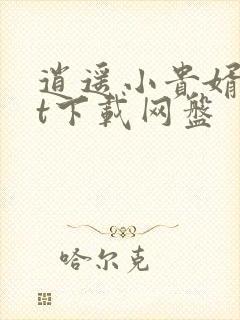 逍遥小贵婿
t下载网盘
哈尔克